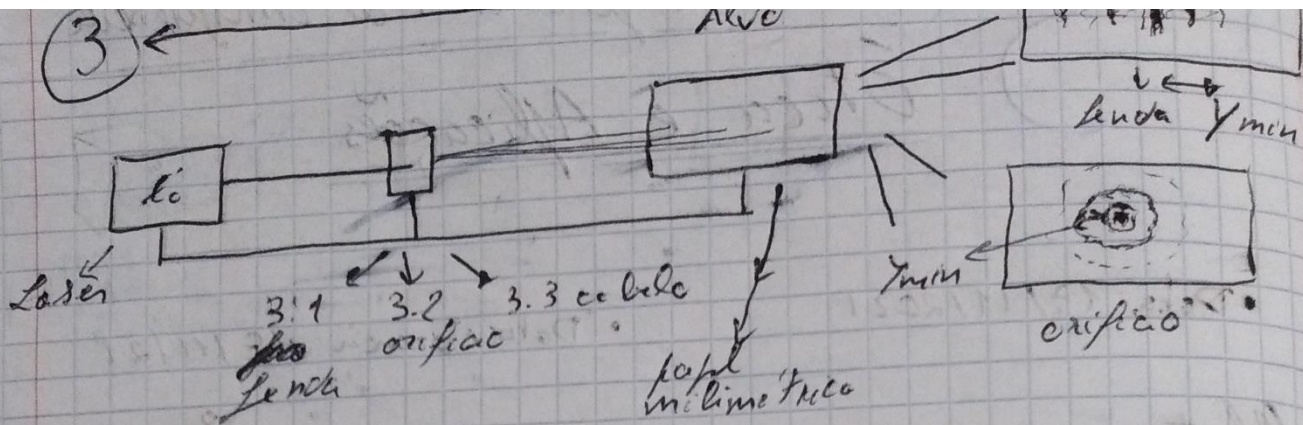 3
Alvo
fenda
Ymin
Laser
3.1
fenda
3.2
orificio
3.3 cabelo
papel
milimétrico
Ymin
orificio